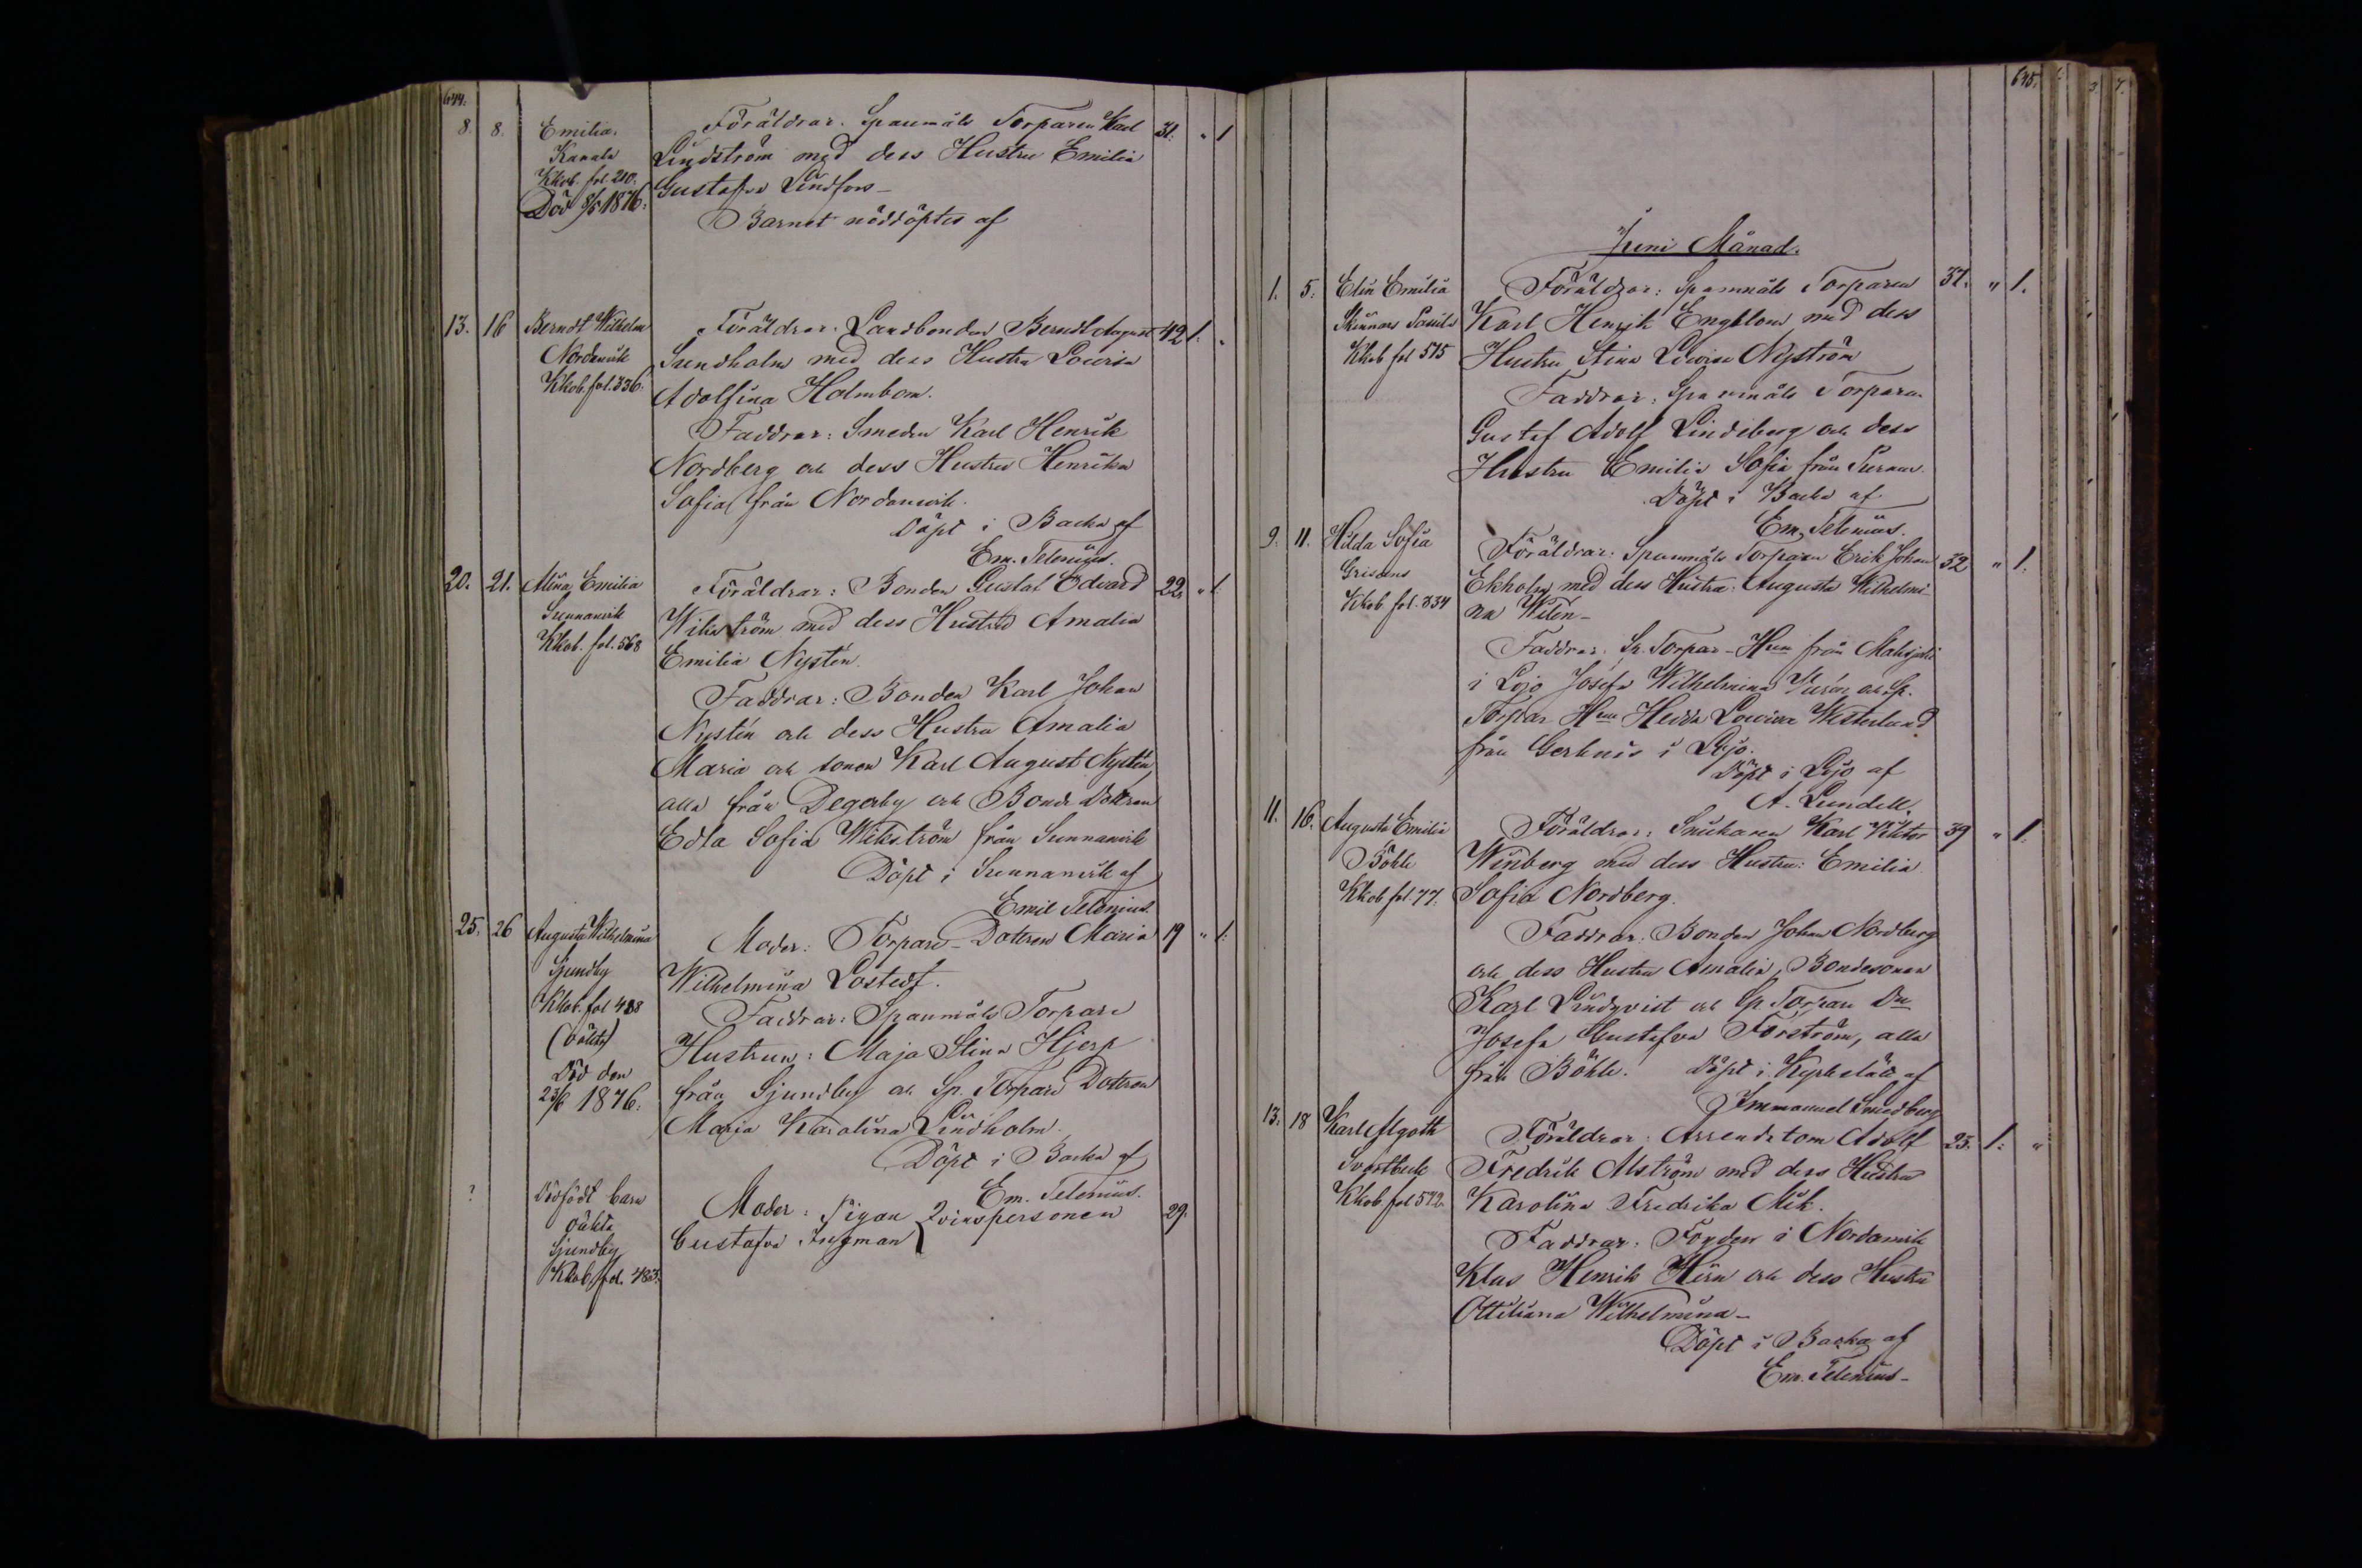 644.
8. 8. Emilia. Föräldrar. Spanmåls Torparen Karl 31. " 1
Kanala Lindström med dess Hustru Emilia
Kkob. fol. 210. Gustafva Lindfors_
Död 8/5 1876. Barnet nöddöptes af
13. 16 Berndt Wilhelm Föräldrar. Landbonden Berndt August 42 1. "
Nordanvik Sundholm med dess Hustru Lovisa
Kkob. fol. 336. Adolfina Holmbom.
Faddrar: Smeden Karl Henrik
Nordberg och dess Hustru Henrika
Sofia från Nordanvik.
Döpt i Backa af
Em. Telenius.
20. 21. Alina Emilia Föräldrar: Bonden Gustaf Edvard 22. " 1.
Sunnanvik Wikström med dess Hustru Amalia
Kkob. fol. 568 Emilia Nystén.
Faddrar: Bonden Karl Johan
Nystén och dess Hustru Amalia
Maria och sonen Karl August Nystén
alla från Degerby och Bonde Dottren
Edla Sofia Wikström från Sunnanvik
Döpt i Sunnanvik af
Emil Telenius.
25. 26 Augusta Wilhelmina Moder: Torpare-Dottren Maria 19 " 1.
Sjundby Wilhelmina Lostedt.
Kkob. fol 488 Faddrar: Spanmåls Torpare
(oäkta) Hustrun: Maja Stina Hjerp
Död den från Sjundby och Sp. Torpare Dottren
23/6 1876. Maria Karolina Lindholm.
Döpt i Backa af
Em. Telenius.
? Dödfödt barn Moder: Pigan Qvinspersonen 29.
oäkta Gustafva Ingman
Sjundby
Kkob. fol. 483.
645.
Juni Månad.
1. 5. Elin Emilia Föräldrar: Spanmåls Torparen 37. " 1.
Karl Henrik Engblom med dess
Kkob fol 515 Hustru Stina Lovisa Nyström
Faddrar: Spanmåls Torparen
Gustaf Adolf Lindeberg och dess
Hustru Emilia Sofia från
Döpt i Backa af
Em. Telenius.
9. 11. Hilda Sofia Föräldrar: Spanmåls Torparen Erik Johan 32 " 1.
Grisans Ekholm med dess Hustru: Augusta Wilhelmi-
Kkob fol. 334 na Witén_
Faddrar: Sp. Torpar-Hun från
i Lojo Josefa Wilhelmina och Sp.
Torpar Hun Hedda Lovisa Westerlund
från Gerknäs i Lojo.
Döpt i Lojo af
A. Lundell.
11. 16. Augusta Emilia Föräldrar: Snickaren Karl Viktor 39 " 1.
Böhle Winberg med dess Hustru: Emilia
Kkob fol. 77. Sofia Nordberg.
Faddrar: Bonden Johan Nordberg
och dess Hustru Amalia, Bondesonen
Karl Lindqvist och Sp. Torpare Dn
Josefa Gustafva Forström, alla
från Böhle. Döpt i Kyrkslätt af
Immanuel Smedberg
13. 18 Karl Algoth Föräldrar: Arrendatorn Adolf 25. 1. "
Svartbeck Fredrik Alström med dess Hustru
Kkob fol 572. Karolina Fredrika Mik.
Faddrar: Fogden i Nordanvik
Klas Henrik Hirn och dess Hustru
Ottiliana Wilhelmina_
Döpt i Backa af
Em. Telenius_